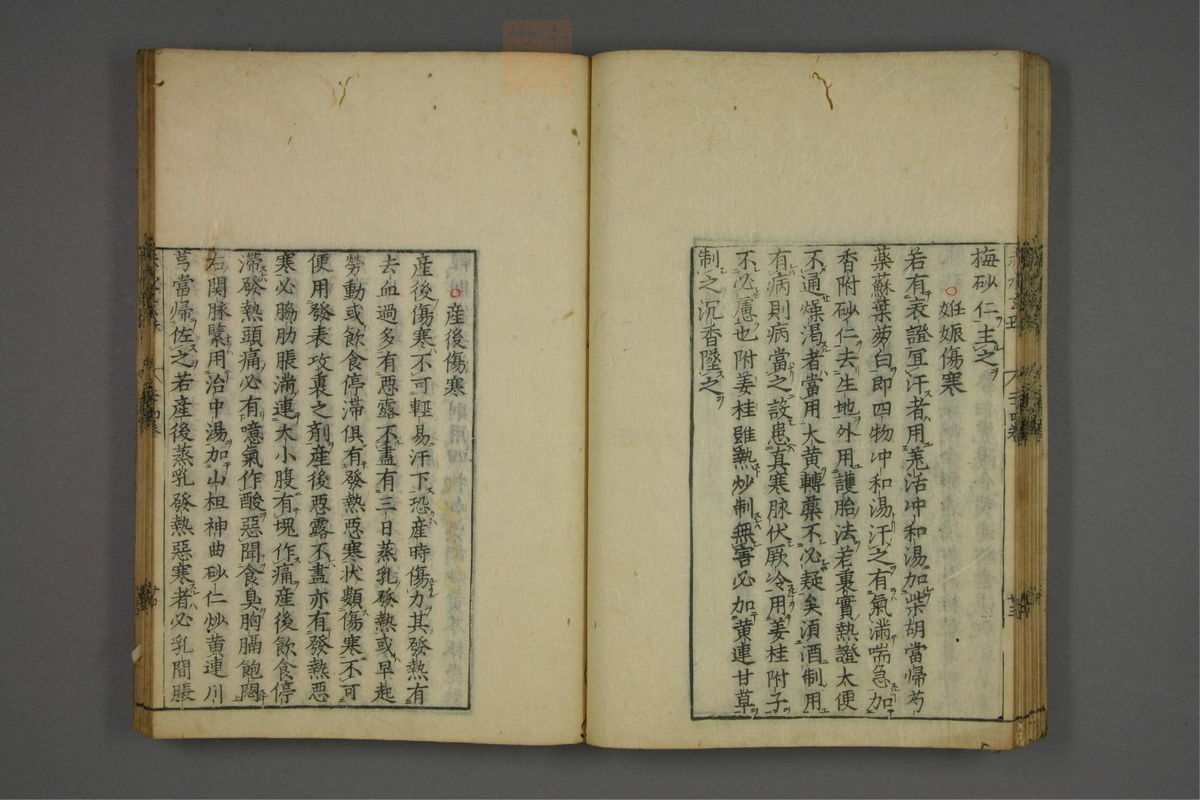 梅砂仁主之
○妊娠傷寒
若有表證宜汗者用羗活冲和湯加柴胡當歸芍
藥蘇葉葱白即四物冲和湯汗之有氣滿喘急加
香附砂仁去生地外用護胎法若裏實熱證大便
不通燥渴者當用大黄轉藥不必疑矣須酒制用
有病則病當之設患真寒脉伏厥冷用姜桂附子
不必慮也附姜桂雖熱炒制無害必加黄連甘草
制之沉香墜之
○産後傷寒
産後傷寒不可輕易汗下恐産時傷力其發熱有
去血過多有惡露不盡有三日蒸乳發熱或早起
勞動或飲食停滯俱有發熱惡寒状類傷寒不可
便用發表攻裏之剤産後惡露不盡亦有發熱惡
寒必腸肋脹滿連大小腹有塊作痛産後飲食停
滯發熱頭痛必有噫氣作酸惡聞食臭胸膈飽悶
右関脉緊用治中湯加山柤神曲砂仁炒黄連川
芎當歸佐之若産後蒸乳發熱惡寒者必乳間脹